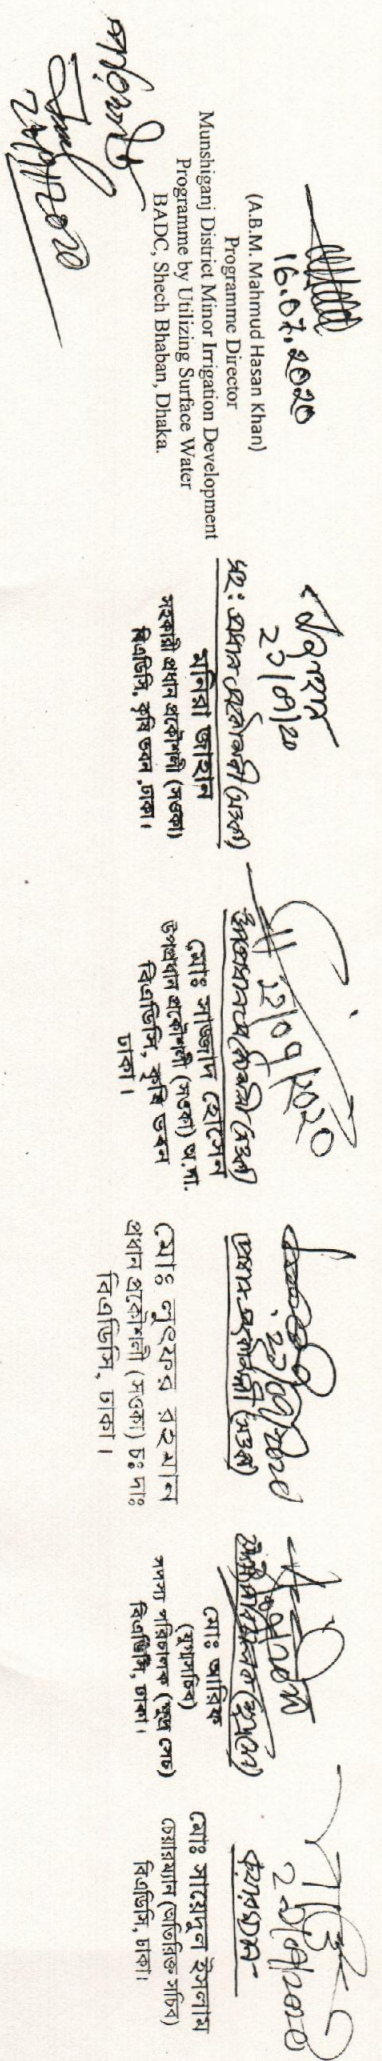 16.07.2020
(A.B.M. Mahmud Hasan Khan)
Programme Director
Munshiganj District Minor Irrigation Development
Programme by Utilizing Surface Water
BADC, Shech Bhaban, Dhaka.
সহঃ প্রধান প্রকৌশলী (সওকা)
মনিরা জাহান
সহকারী প্রধান প্রকৌশলী (সওকা)
বিএডিসি, কৃষি ভবন, ঢাকা।
উপপ্রধান প্রকৌশলী (সওকা)
মোঃ সাজ্জাদ হোসেন
উপপ্রধান প্রকৌশলী (সওকা) অ.দা.
বিএডিসি, কৃষি ভবন
ঢাকা।
প্রধান প্রকৌশলী (সওকা)
মোঃ লুৎফর রহমান
প্রধান প্রকৌশলী (সওকা) চঃ দাঃ
বিএডিসি, ঢাকা।
মোঃ আরিফ
(যুগ্মসচিব)
সদস্য পরিচালক (ক্ষুদ্র সেচ)
বিএডিসি, ঢাকা।
চেয়ারম্যান
মোঃ সায়েদুল ইসলাম
চেয়ারম্যান (অতিরিক্ত সচিব)
বিএডিসি, ঢাকা।